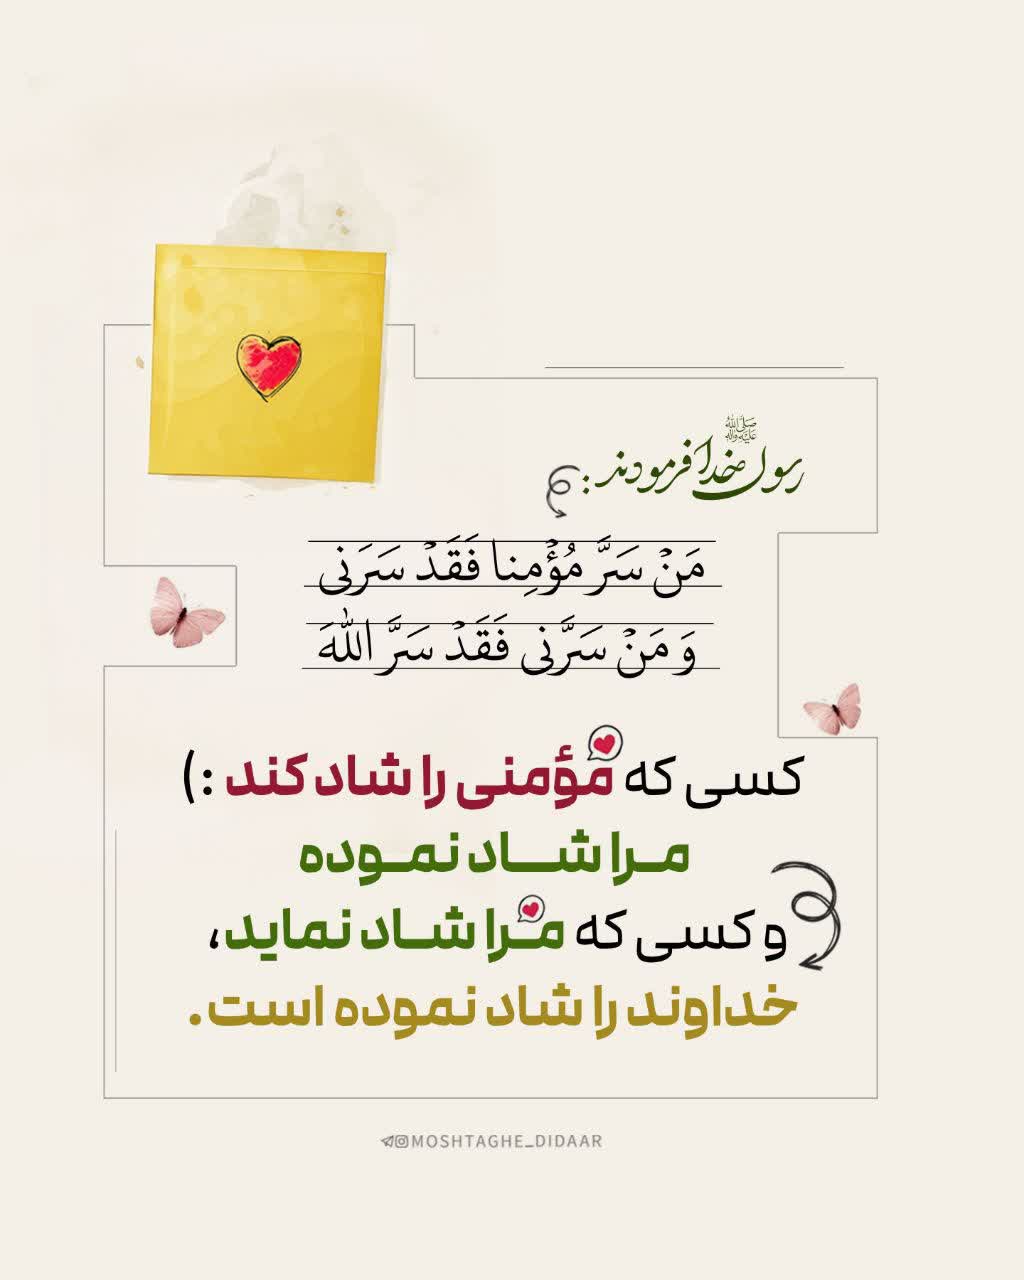 رسول خدا ﷺ فرمودند :
مَنْ سَرَّ مُؤْمِنا فَقَدْ سَرَنی
وَ مَنْ سَرَّنی فَقَدْ سَرَّ اللهَ
کسی که مؤمنی را شاد کند :)
مـرا شــاد نمـوده
و کسی که مـرا شـاد نماید،
خداوند را شاد نموده است.
MOSHTAGHE_DIDAAR